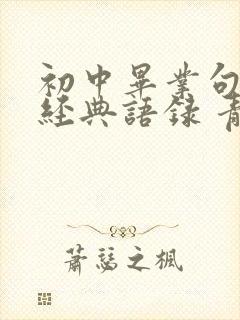 初中畢業句
經典語錄 青
蕭瑟之楓